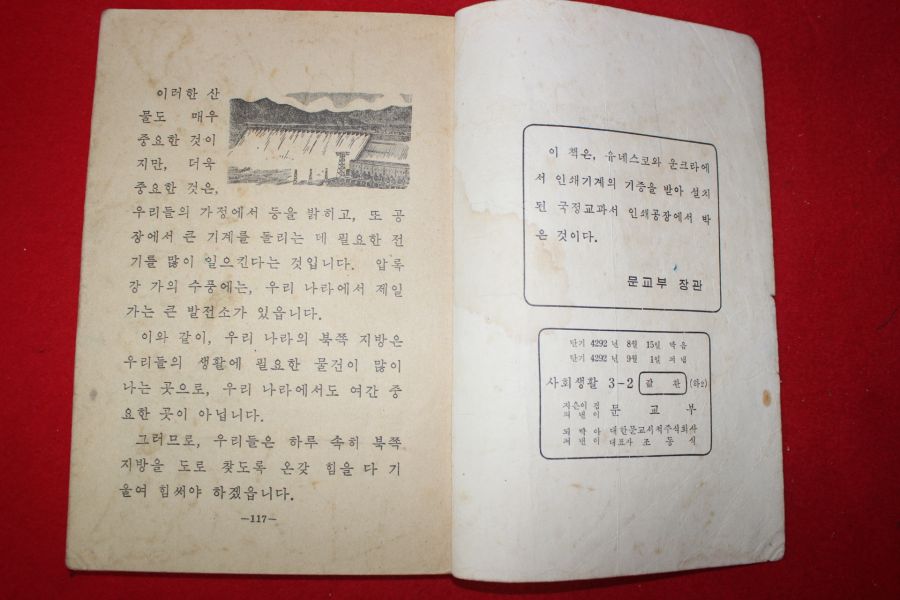 이러한 산
물도 매우
중요한 것이
지만, 더욱
중요한 것은,
우리들의 가정에서 등을 밝히고, 또 공
장에서 큰 기계를 돌리는 데 필요한 전
기를 많이 일으킨다는 것입니다. 압록
강 가의 수풍에는, 우리 나라에서 제일
가는 큰 발전소가 있읍니다.
이와 같이, 우리 나라의 북쪽 지방은
우리들의 생활에 필요한 물건이 많이
나는 곳으로, 우리 나라에서도 여간 중
요한 곳이 아닙니다.
그러므로, 우리들은 하루 속히 북쪽
지방을 도로 찾도록 온갖 힘을 다 기
울여 힘써야 하겠읍니다.
—117—
이 책은, 유네스코와 운크라에
서 인쇄기계의 기증을 받아 설치
된 국정교과서 인쇄공장에서 박
은 것이다.
문교부 장관
단기 4292 년 8월 15일 박음
단기 4292 년 9월 1일 펴냄
사회생활 3-2 값 환 (하2)
지은이 겸
펴낸이 문교부
되박아
펴낸이 대한문교서적주식회사
대표자 조동식